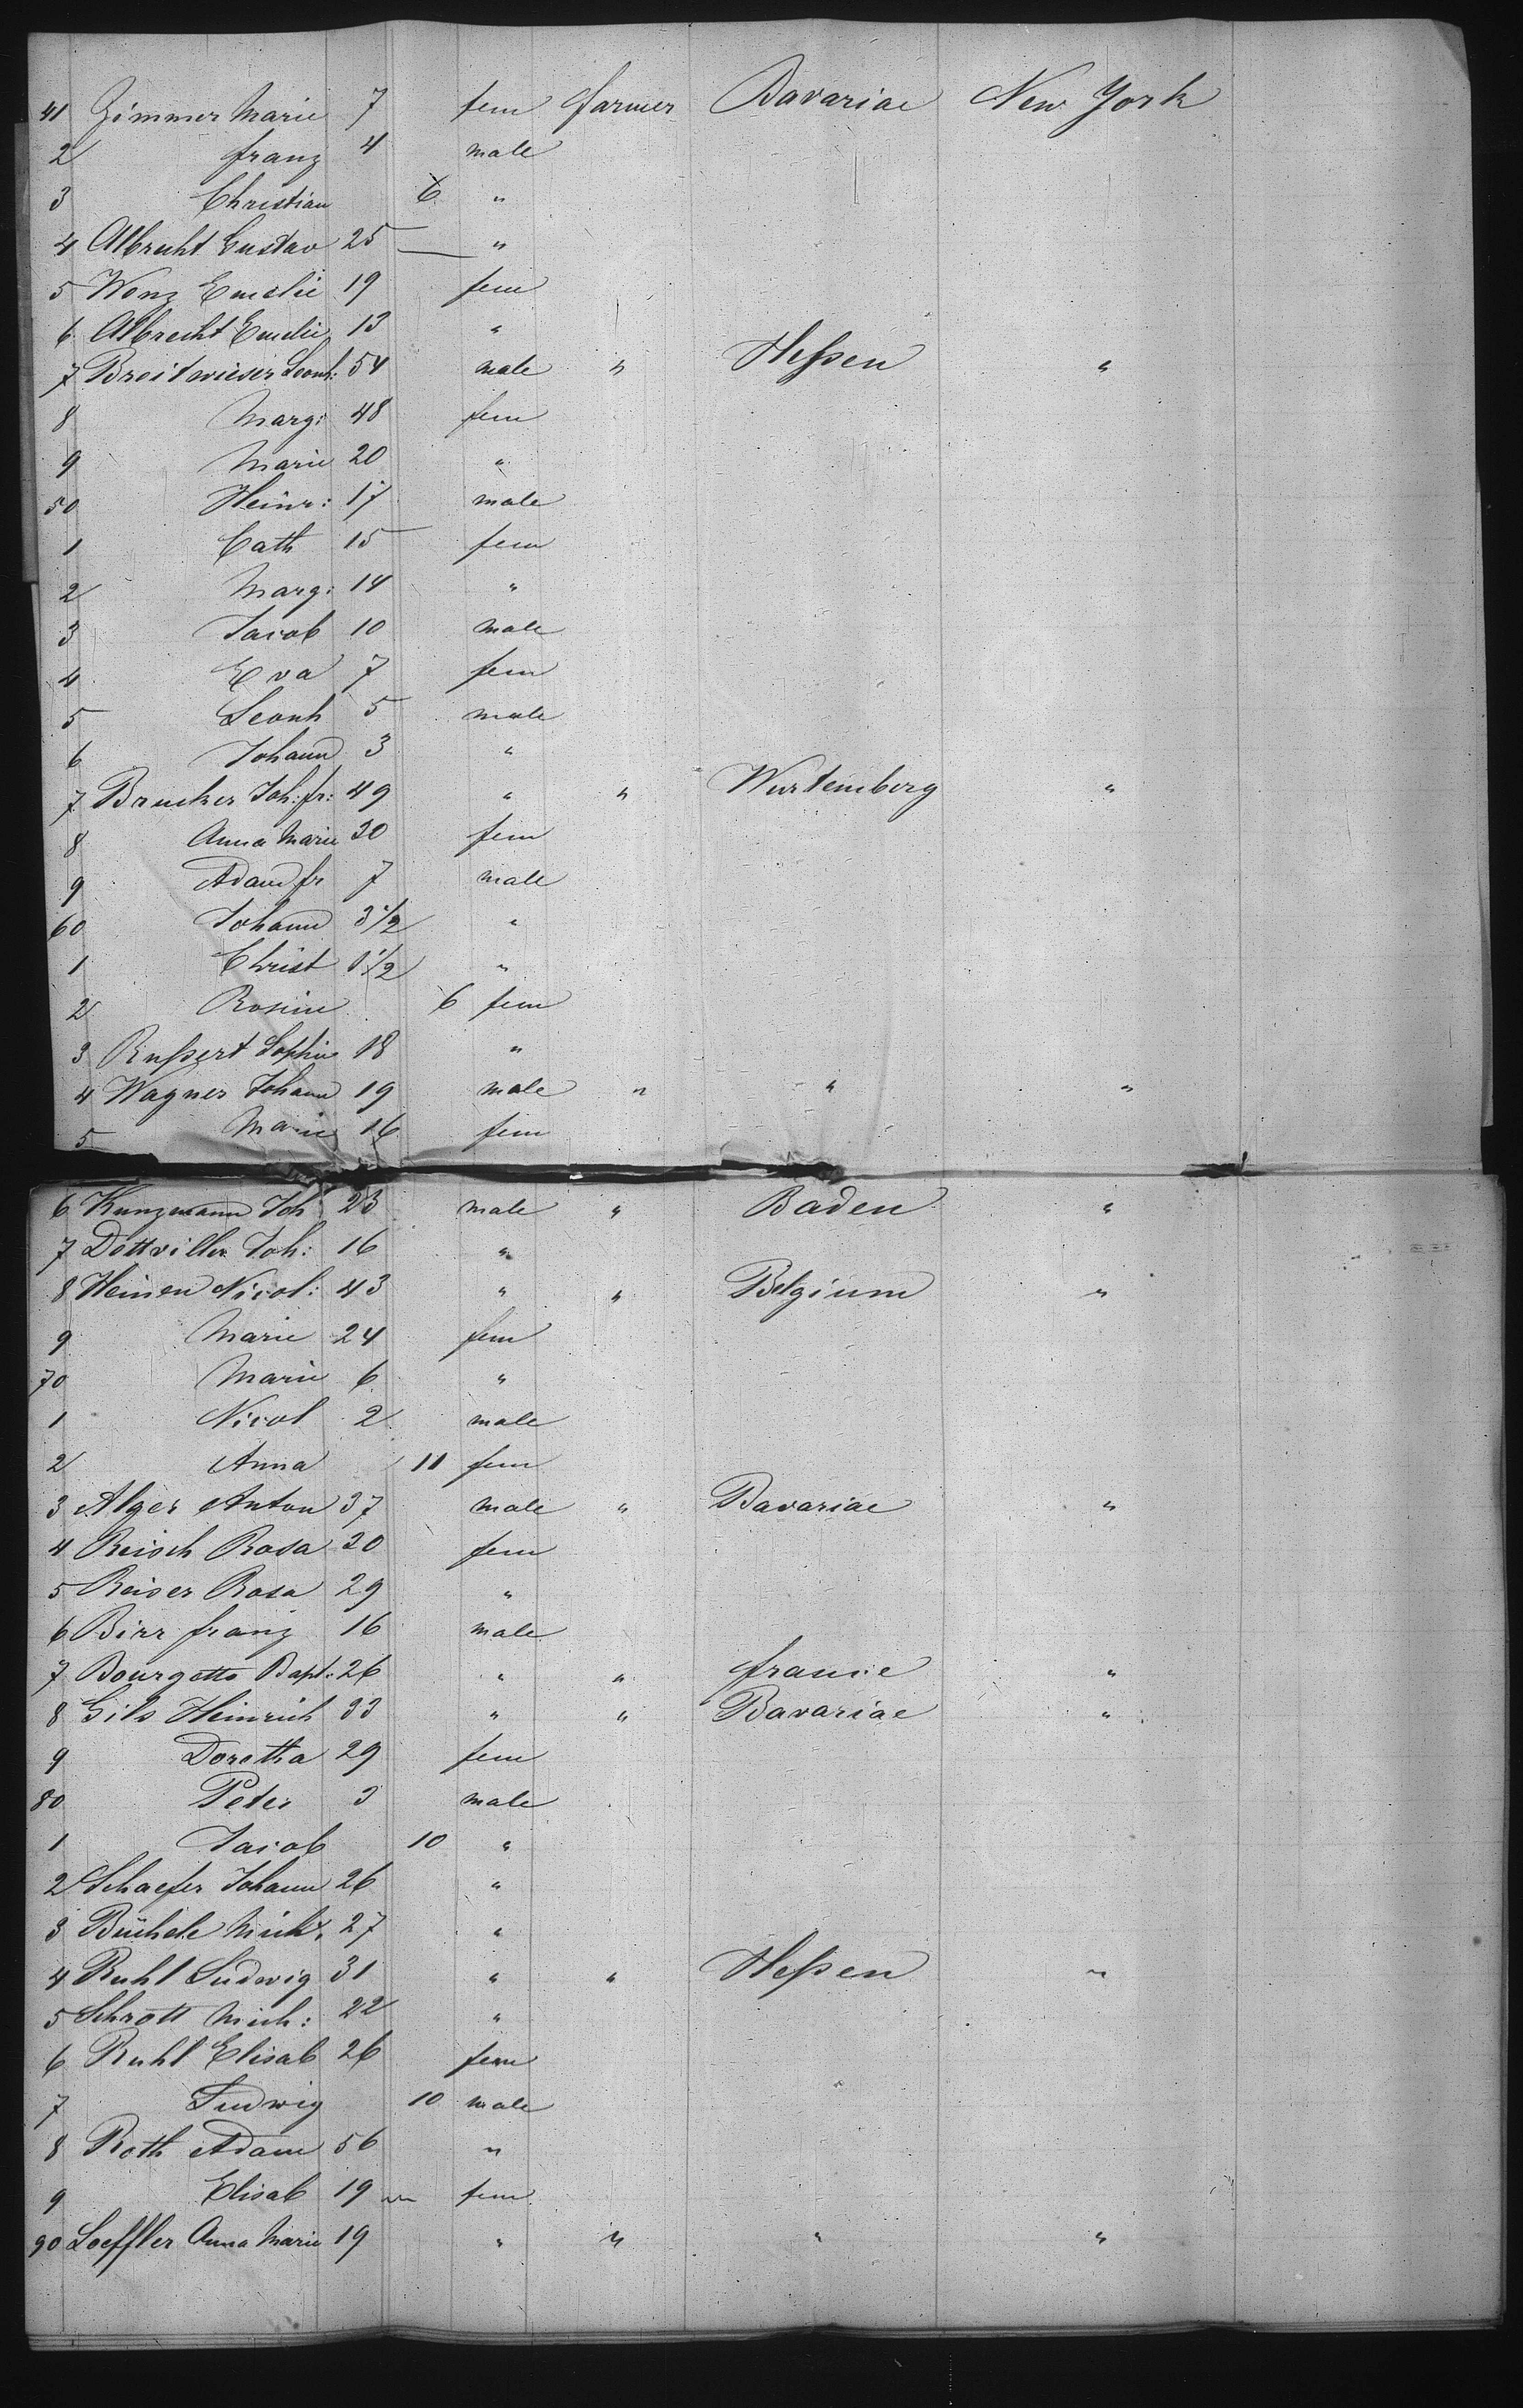 41 Zimmer Marie 7 fem farmer Bavariae New York
2 franz 4 male
3 Christian 6 "
4 Albrecht Gustav 25 "
5 Wenz Emelie 19 fem
6 Albrecht Emelie 13 "
7 Breitwieser Leonh: 54 male " Heßen "
8 Marg: 48 fem
9 Marie 20 "
50 Heinr: 17 male
1 Cath 15 fem
2 Marg: 14 "
3 Jacob 10 male
4 Eva 7 fem
5 Leonh 5 male
6 Johann 3 "
7 Brucker Joh: fr: 49 " " Wurtemberg "
8 Anna Marie 30 fem
9 Adam fr 7 male
60 Johann 3 1/2 "
1 Christ 1 1/2 "
2 Rosine 6 fem
3 Rußert Sophie 18 "
4 Wagner Johann 19 male " " "
5 Marie 16 fem
6 Kunzmann Joh 23 male " Baden "
7 Dottviller Joh: 16 "
8 Heinen Nicol: 43 " " Belgium "
9 Marie 24 fem
70 Marie 6 "
1 Nicol 2 male
2 Anna 11 fem
3 Alger Anton 37 male " Bavariae "
4 Reisch Rosa 20 fem
5 Reiser Rosa 29 "
6 Birr franz 16 male
7 Bourgette Bapt: 26 " " france "
8 Gils Heinrich 33 " " Bavariae "
9 Doretha 29 fem
80 Peter 3 male
1 Jacob 10 "
2 Schaefer Johann 26 "
3 Büchele Mich: 27 "
4 Ruhl Ludwig 31 " " Heßen "
5 Schrott Mich: 22 "
6 Ruhl Elisab 26 fem
7 Ludwig 10 male
8 Roth Adam 56 "
9 Elisab 19 fem
90 Loeffler Anna Marie 19 " " " "